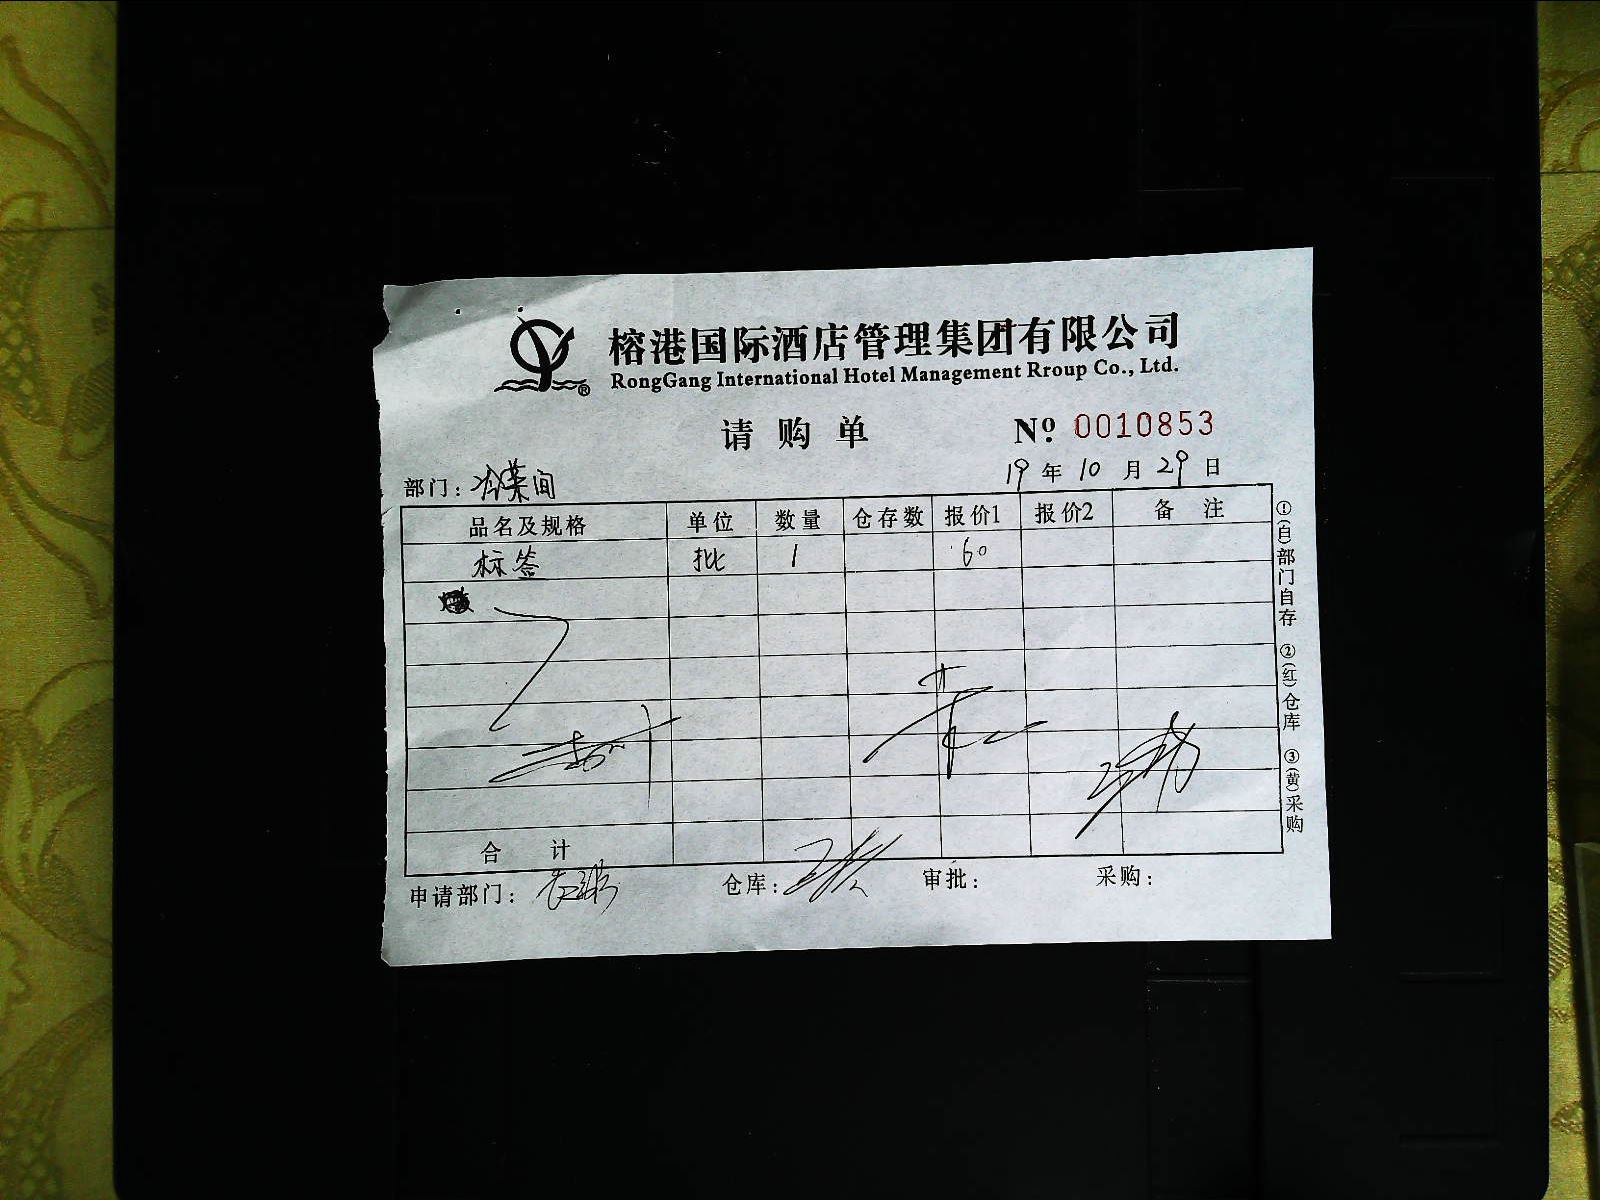 榕港国际酒店管理集团有限公司
RongGang International Hotel Management Rroup Co., Ltd.
®
请购单 Nº 0010853
部门：冷菜间 19年10月29日
品名及规格 单位 数量 仓存数 报价1 报价2 备注
标签 批 1 60
合计
申请部门： 仓库： 审批： 采购：
①(白)部门自存 ②(红)仓库 ③(黄)采购